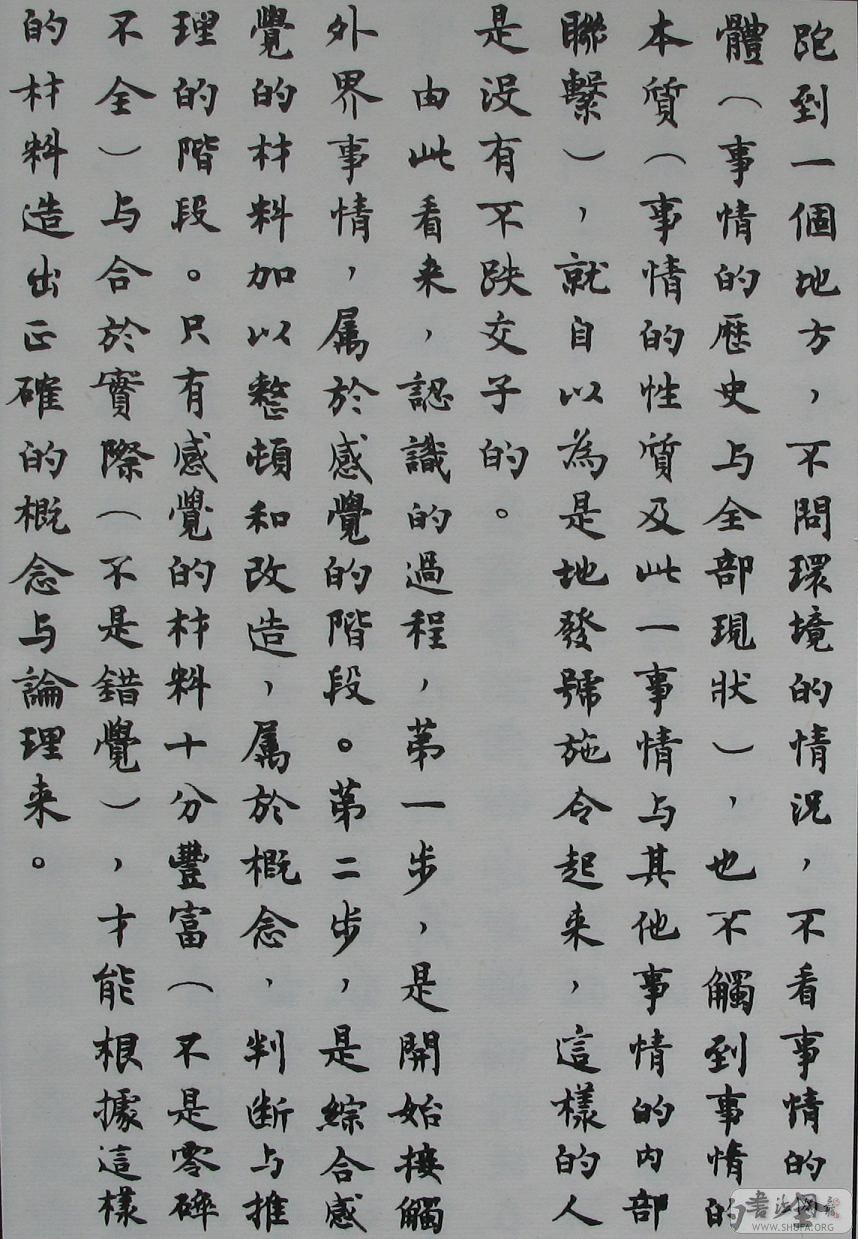 跑到一個地方，不問環境的情况，不看事情的全
體（事情的歷史与全部現狀），也不觸到事情的
本質（事情的性質及此一事情与其他事情的内部
聯繫），就自以為是地發號施令起来，這樣的人
是没有不跌交子的。
由此看来，認識的過程，第一步，是開始接觸
外界事情，属於感覺的階段。第二步，是綜合感
覺的材料加以整頓和改造，属於概念、判断与推
理的階段。只有感覺的材料十分豐富（不是零碎
不全）与合於實際（不是錯覺），才能根據這樣
的材料造出正確的概念与論理来。
WWW.SHUFA.ORG